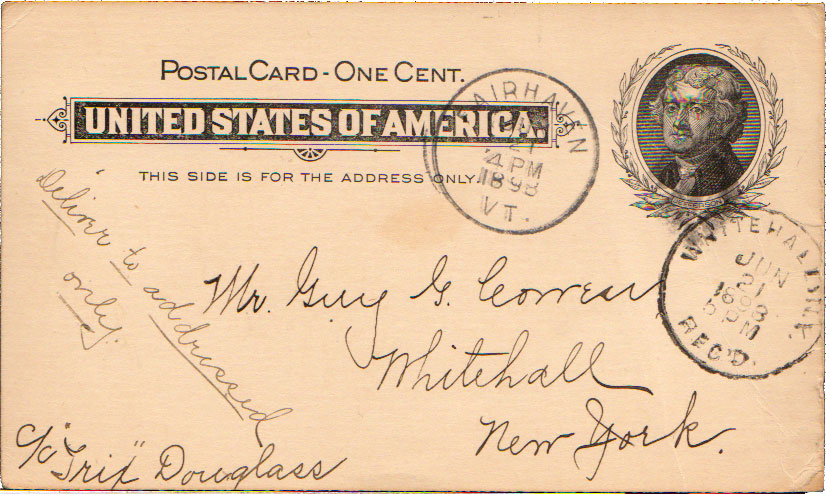 POSTAL CARD - ONE CENT.
UNITED STATES OF AMERICA.
THIS SIDE IS FOR THE ADDRESS ONLY.
AIRHAVEN
21
4 PM
1898
VT.
WHITEHALL
JUN
21
1898
5 PM
REC'D.
"Deliver to addressed
only.
Mr. Guy G.
Whitehall
New York.
c/o "Trix" Douglass